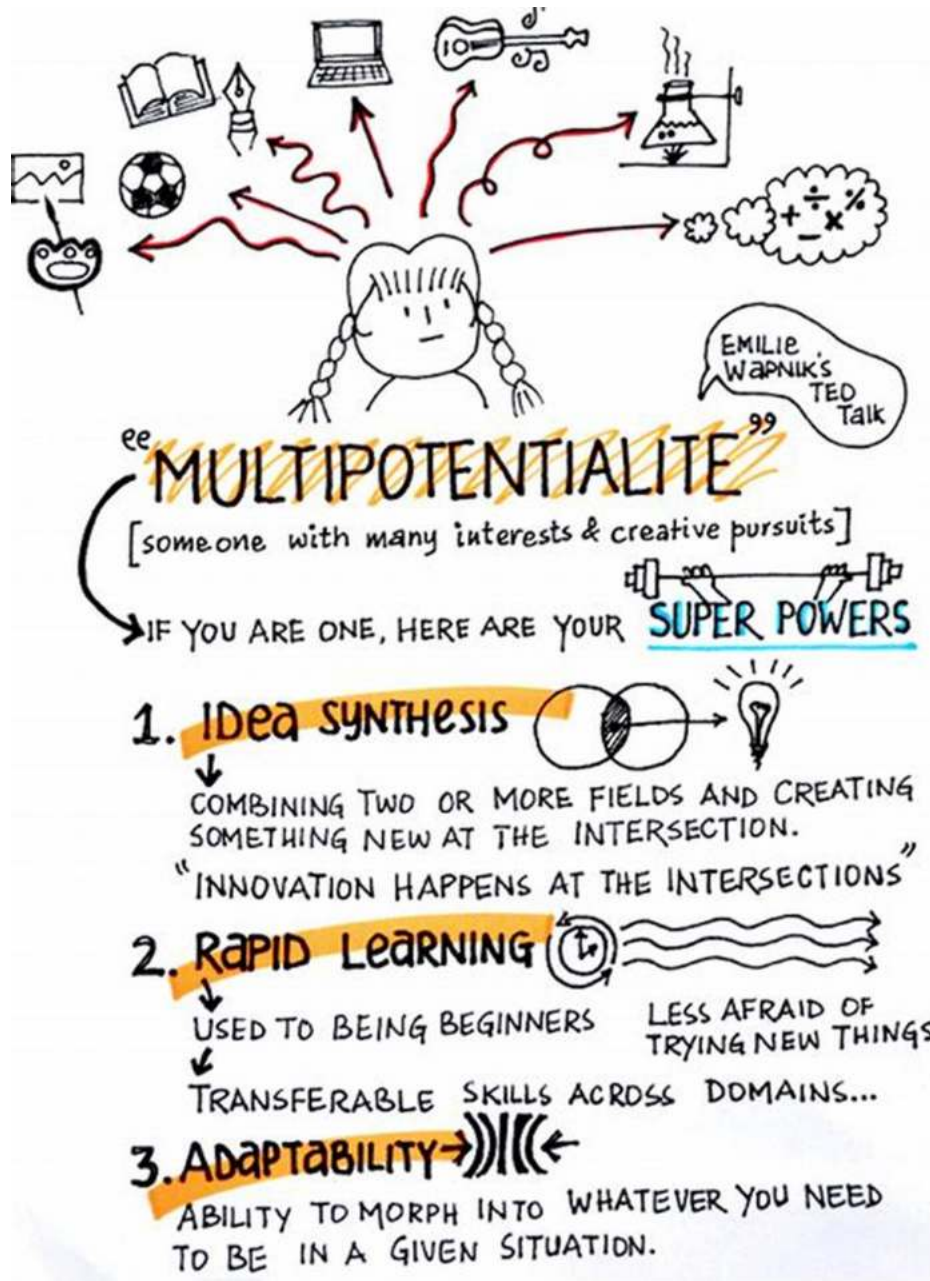 EMILIE
WAPNIK'S
TED
Talk
"MULTIPOTENTIALITE"
[someone with many interests & creative pursuits]
IF YOU ARE ONE, HERE ARE YOUR SUPER POWERS
1. IDea SYNTHesIS
COMBINING TWO OR MORE FIELDS AND CREATING
SOMETHING NEW AT THE INTERSECTION.
"INNOVATION HAPPENS AT THE INTERSECTIONS"
2. RaPID LeaRNING
USED TO BEING BEGINNERS
LESS AFRAID OF
TRYING NEW THINGS
TRANSFERABLE SKILLS ACROSS DOMAINS...
3. ADaPTaBILITY
ABILITY TO MORPH INTO WHATEVER YOU NEED
TO BE IN A GIVEN SITUATION.